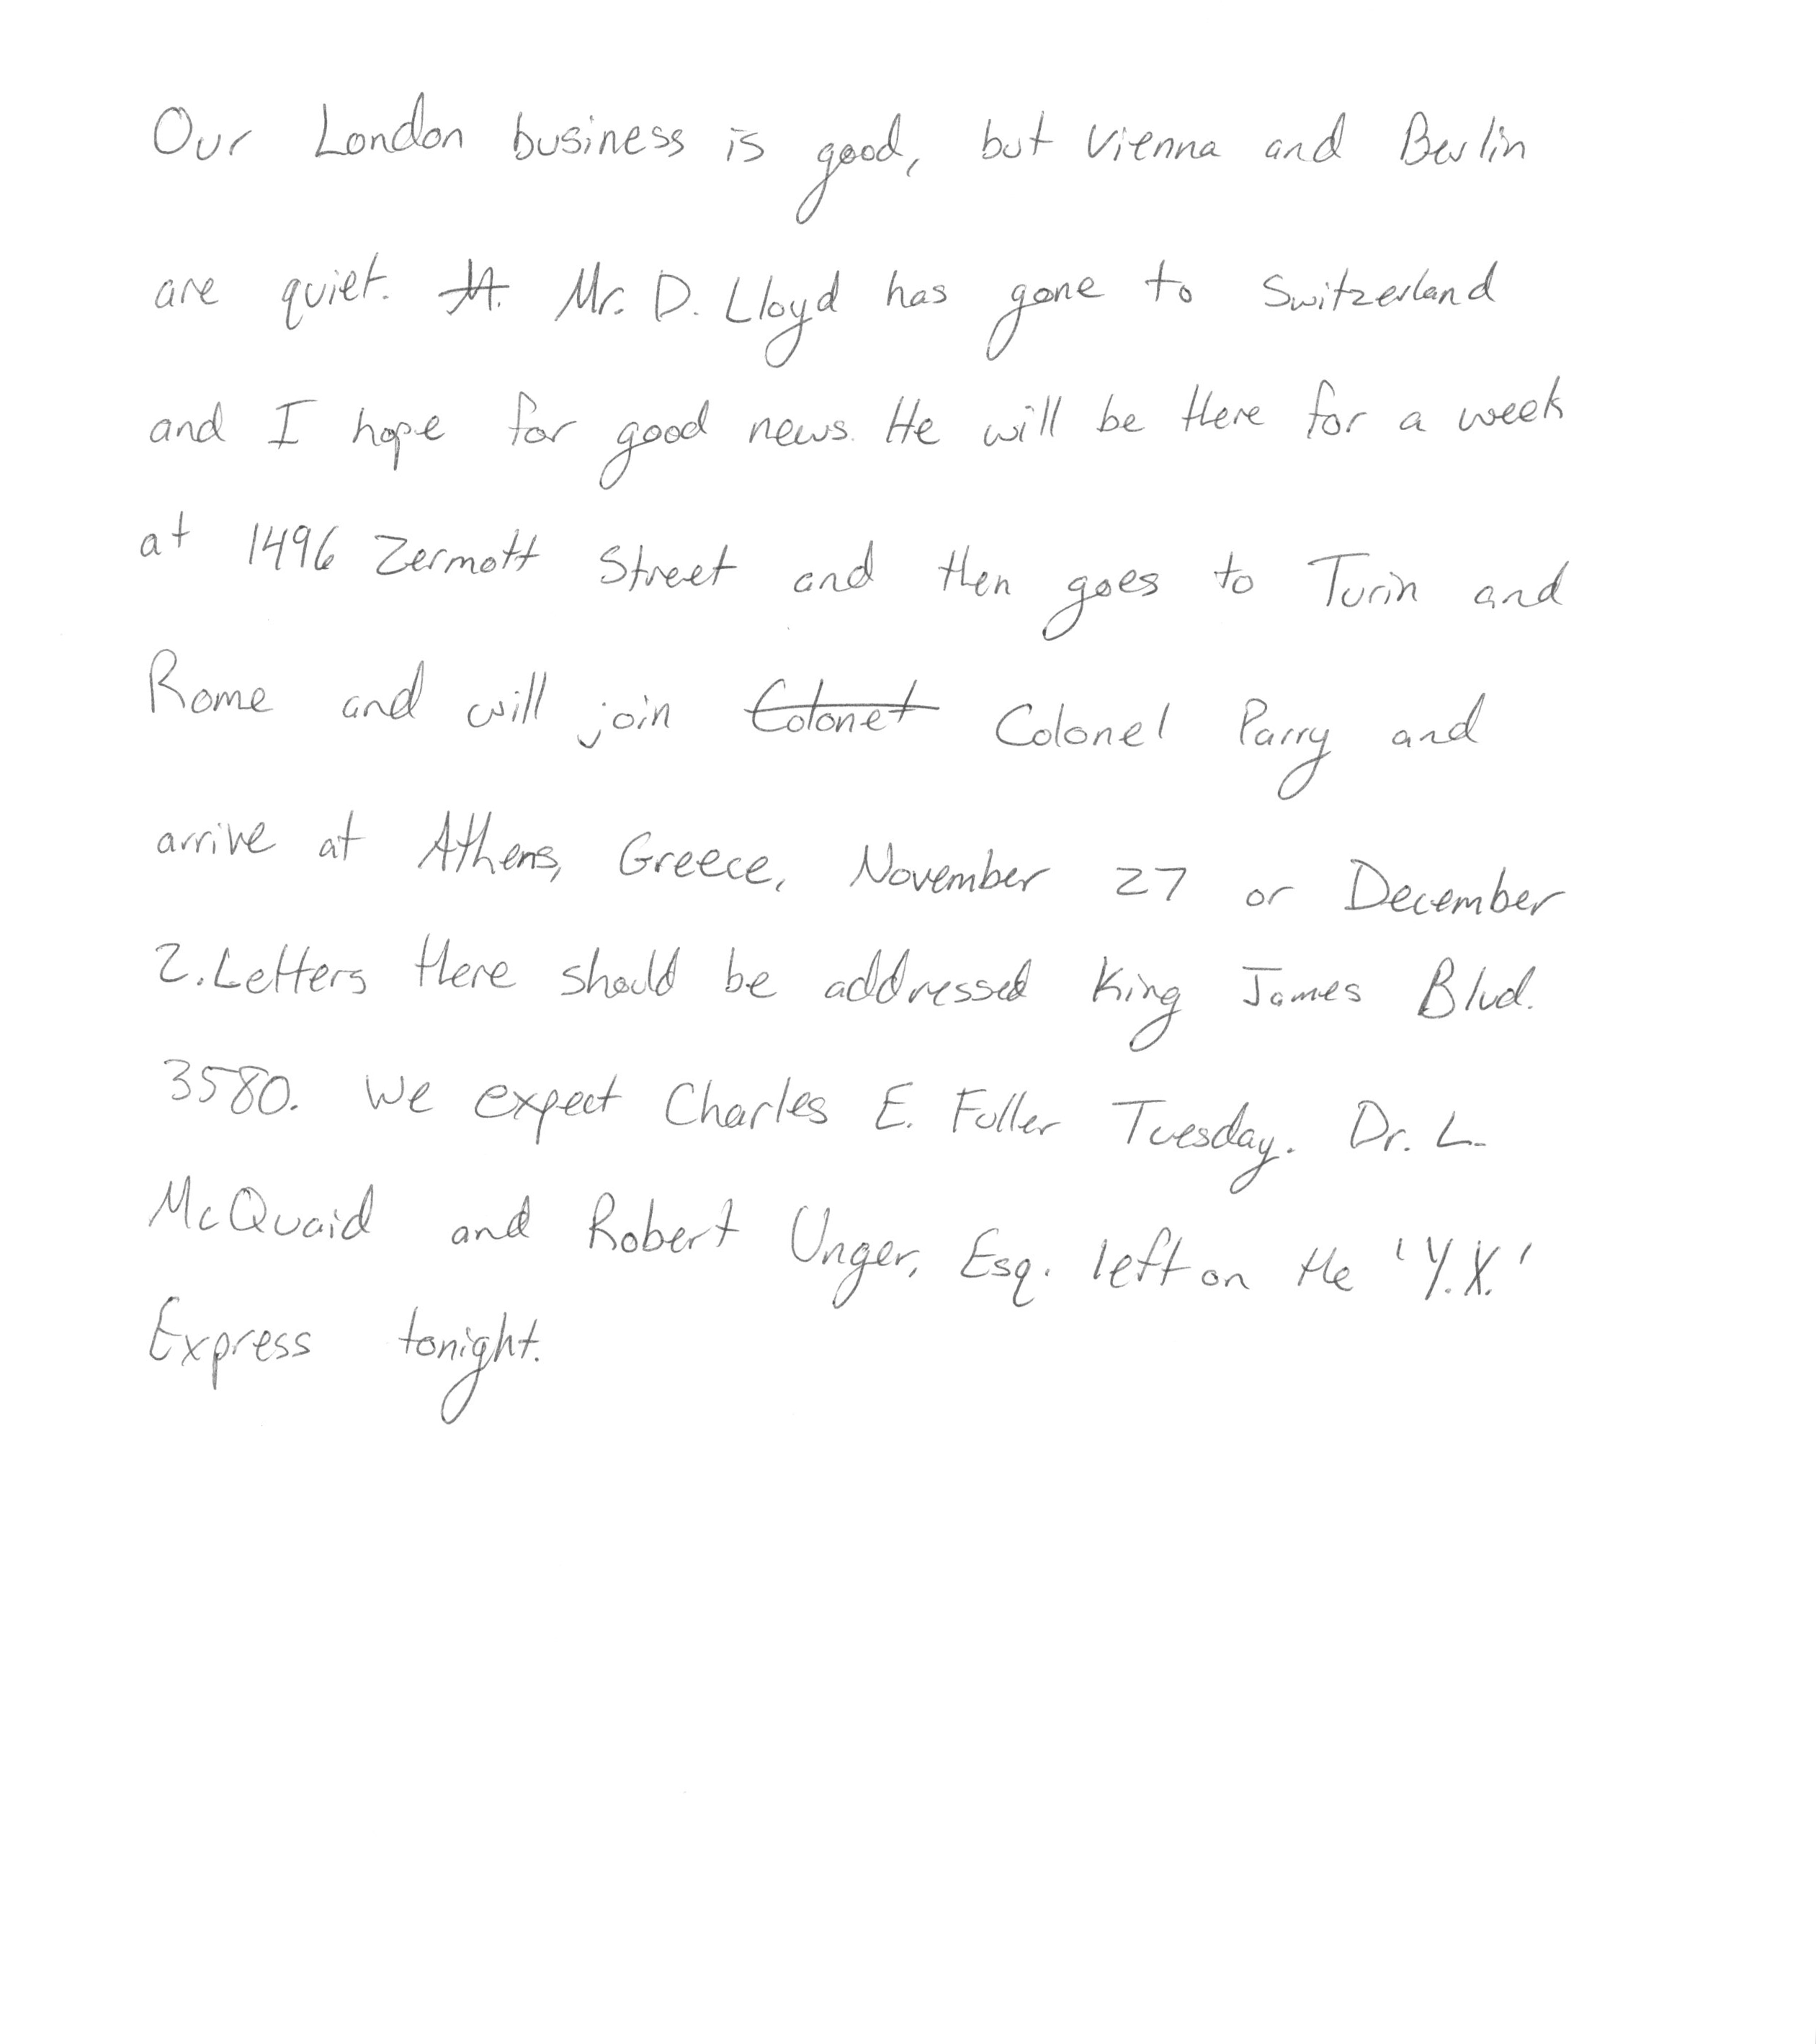 Our London business is good, but Vienna and Berlin
are quiet. Mr. D. Lloyd has gone to Switzerland
and I hope for good news. He will be there for a week
at 1496 Zermott Street and then goes to Turin and
Rome and will join Colonel Colonel Parry and
arrive at Athens, Greece, November 27 or December
2. Letters there should be addressed King James Blvd.
3580. We expect Charles E. Fuller Tuesday. Dr. L.
McQuaid and Robert Unger, Esq. left on the 'Y.X.'
Express tonight.